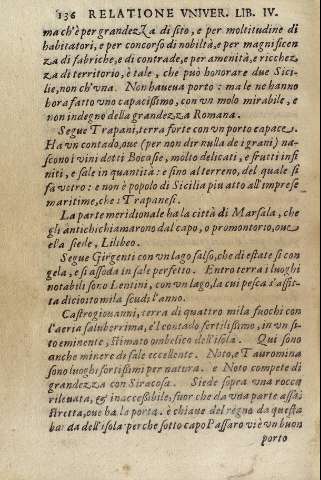 136 RELATIONE VNIVER. LIB. IV.
ma ch'è per grandezza di sito, e per moltitudine di
habitatori, e per concorso di nobiltà, e per magnificen
za di fabriche, e di contrade, e per amenità, e ricchez
za di territorio, è tale, che può honorare due Sici-
lie, non ch'vna. Non haueua porto: ma le ne hanno
hora fatto vno capacissimo, con vn molo mirabile, e
non indegno della grandezza Romana.
Segue Trapani, terra forte con vn porto capace.
Ha vn contado, oue (per non dir nulla de i grani) na-
scono i vini detti Bocasie, molto delicati, e frutti infi
niti, e sale in quantità: e sino al terreno, del quale si
fa vetro: e non è popolo di Sicilia piu atto all'imprese
maritime, che i Trapanesi.
La parte meridionale ha la città di Marsala, che
gli antichi chiamarono dal capo, o promontorio, oue
ella siede, Lilibeo.
Segue Girgenti con vn lago salso, che di estate si con
gela, e si assoda in sale perfetto. Entro terra i luoghi
notabili sono Lentini, con vn lago, la cui pesca s'affit-
ta diciotto mila scudi l'anno.
Castrogiouanni, terra di quattro mila fuochi con
l'aeria saluberrima, e'l contado fertilissimo, in vn si-
to eminente, stimato ombelico dell'isola. Qui sono
anche minere di sale eccellente. Noto, e Tauromina
sono luoghi fortissimi per natura, e Noto compete di
grandezza con Siracosa. Siede sopra vna rocca
rileuata, & inaccessibile, fuor che da vna parte assai
stretta, oue ha la porta. è chiaue del regno da questa
banda dell'isola perche sotto capo Passaro vi è vn buon
porto